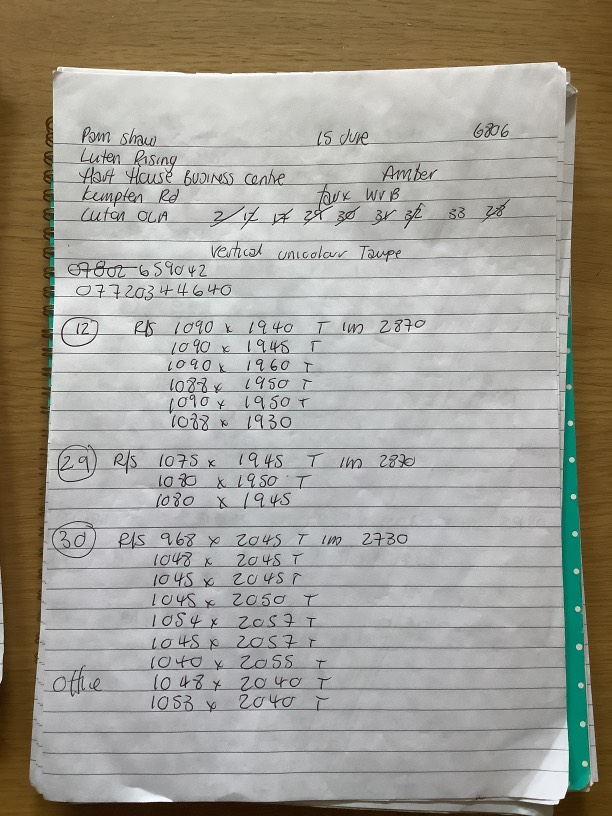 Pam Shaw 15 June 6806
Luton Rising
Hart House Business Centre Amber
Kimpton Rd faux WVB
Luton OLA 2 12 17 29 30 31 32 33 28
Vertical unicolour Taupe
07802 659042
07720344640
12 R/S 1090 x 1940 T 1m 2870
1090 x 1945 T
1090 x 1960 T
1088 x 1950 T
1090 x 1950 T
1088 x 1930
29 R/S 1075 x 1945 T 1m 2870
1080 x 1950 T
1080 x 1945
30 R/S 968 x 2045 T 1m 2730
1048 x 2045 T
1045 x 2045 T
1045 x 2050 T
1054 x 2057 T
1045 x 2057 T
1040 x 2055 T
Office 1048 x 2040 T
1053 x 2040 T